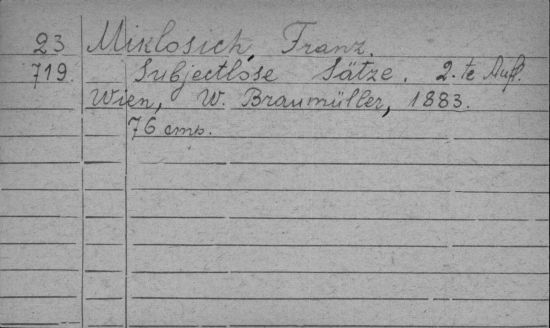 23 Miklosich, Franz.
719. Subjectlose Sätze. 2.te Aufl.
Wien, W. Braumüller, 1883.
76 стр.